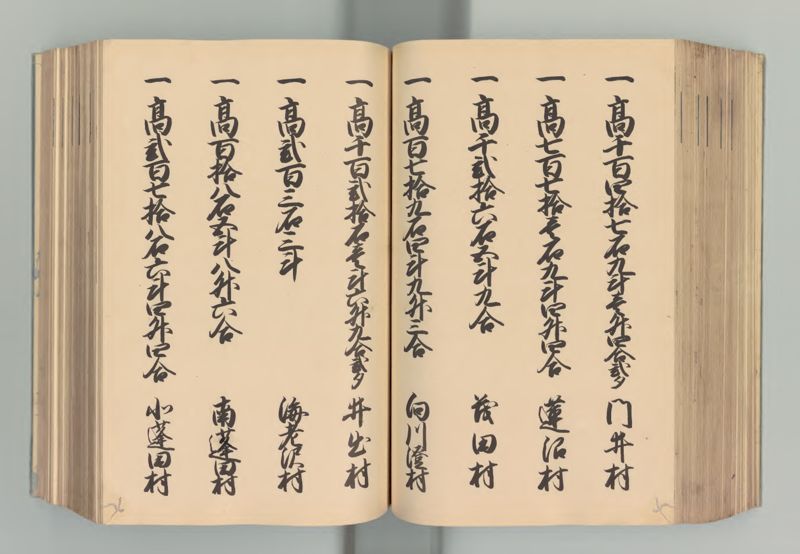 一高千百四拾七石九斗壱升四合弐夕 門井村
一高七百七拾壱石九斗四升四合 蓮沼村
一高千弐拾六石五斗九合 茂田村
一高百七拾九石四斗九升三合 向川澄村
一高千百弐拾石壱斗六升九合弐夕 井出村
一高弐百三石三斗 海老沢村
一高百拾八石五斗八升六合 南蓬田村
一高弐百七拾八石六斗四升四合 北蓬田村